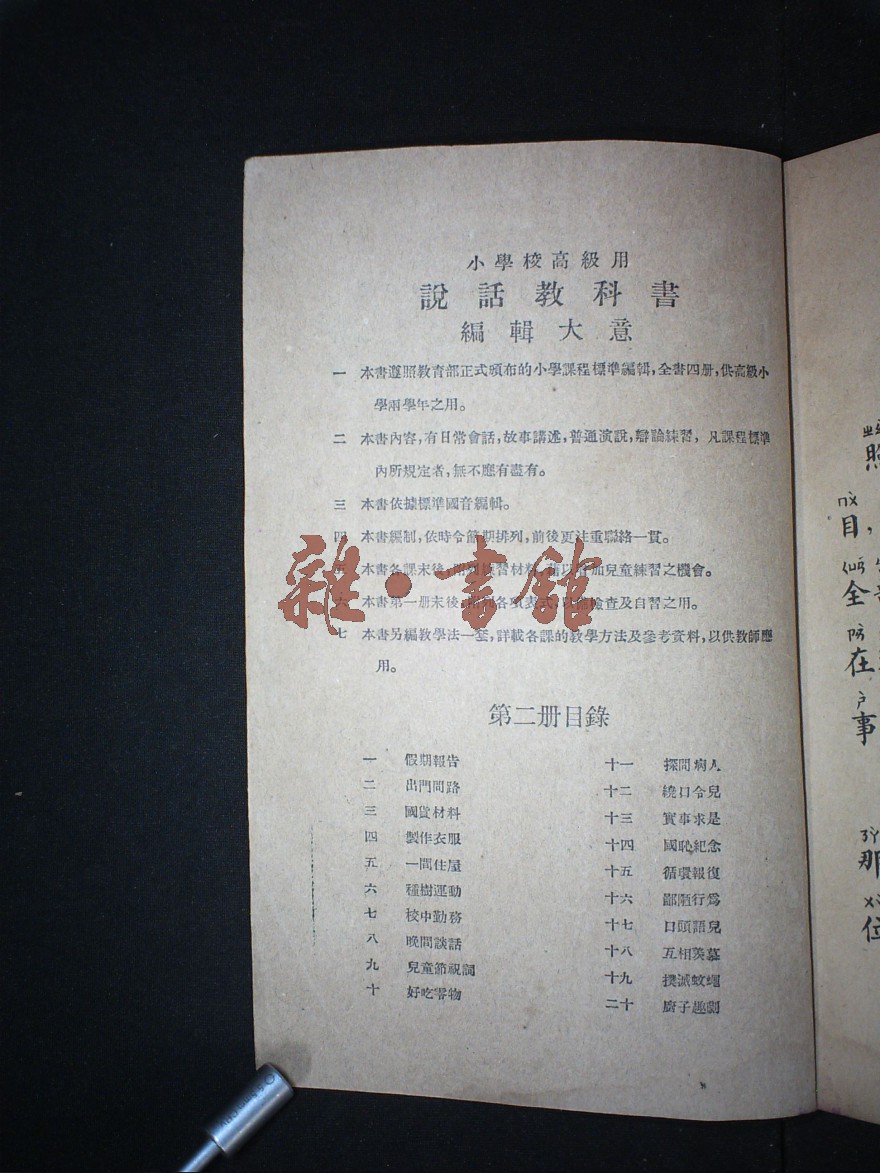 小學校高級用
說話教科書
編輯大意
一 本書遵照教育部正式頒布的小學課程標準編輯,全書四册,供高級小
學兩學年之用。
二 本書內容,有日常會話,故事講述,普通演說,辯論練習,凡課程標準
內所規定者,無不應有盡有。
三 本書依據標準國音編輯。
四 本書編制,依時令節期排列,前後更注重聯絡一貫。
五 本書各課末後,附列練習材料,藉以增加兒童練習之機會。
六 本書第一册末後,附列各項表式,以備檢查及自習之用。
七 本書另編教學法一套,詳載各課的教學方法及參考資料,以供教師應
用。
雜·書館
第二册目錄
一 假期報告
二 出門問路
三 國貨材料
四 製作衣服
五 一間住屋
六 種樹運動
七 校中勤務
八 晚間談話
九 兒童節祝詞
十 好吃零物
十一 探問病人
十二 繞口令兒
十三 實事求是
十四 國恥紀念
十五 循環報復
十六 鄙陋行爲
十七 口頭語兒
十八 互相羨慕
十九 撲滅蚊蠅
二十 廚子趣劇
照
目,
全
在
事
那
位